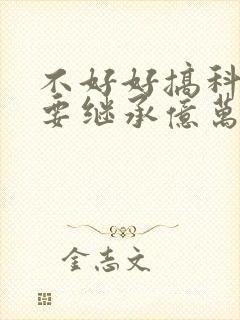 不好好搞科
要继承億萬
金志文